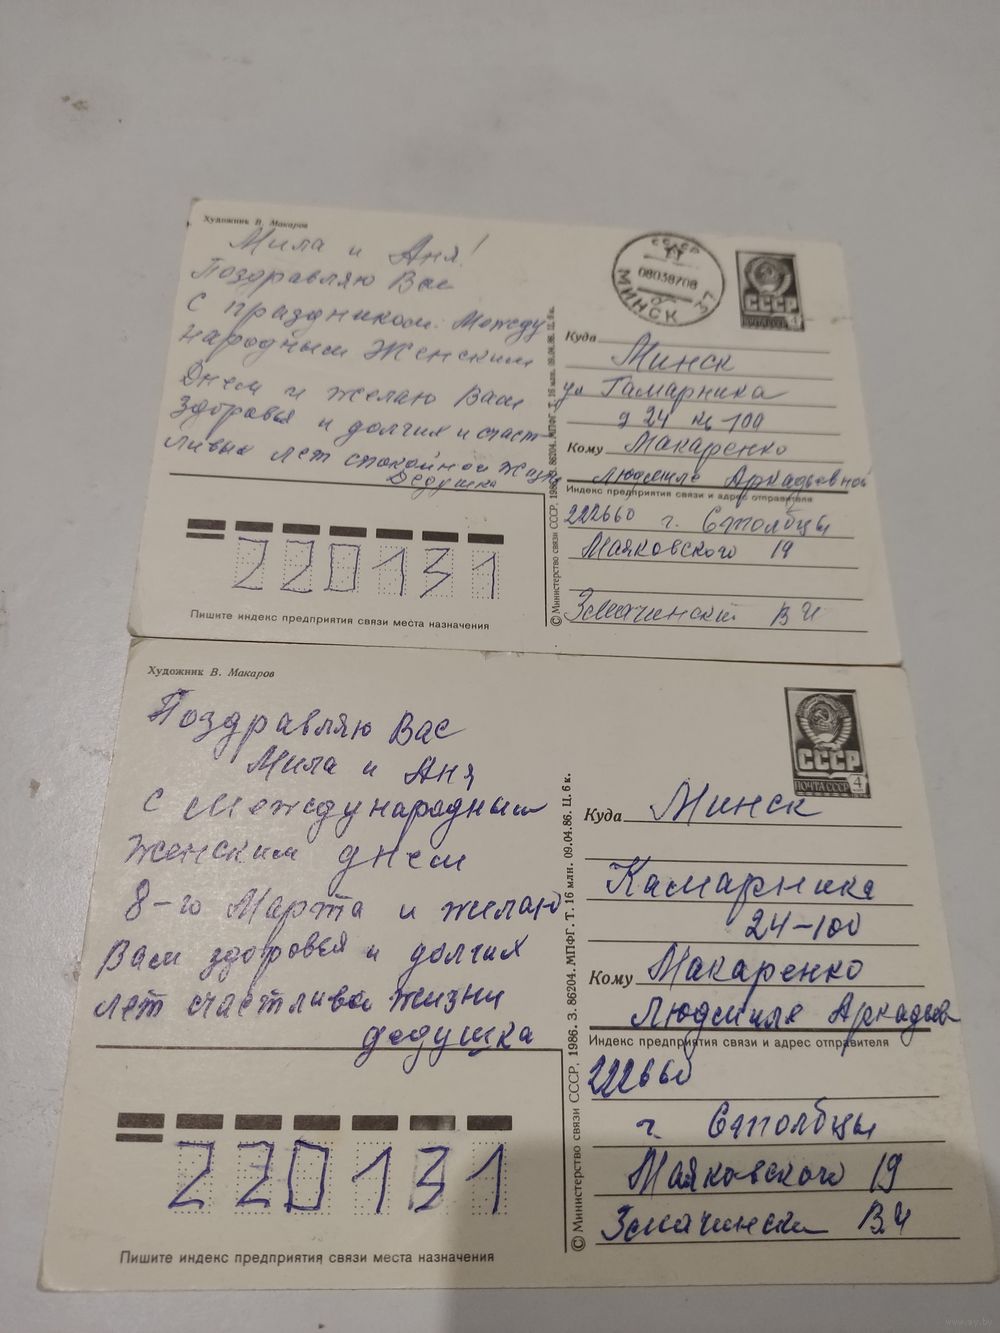 Художник В. Макаров
Мила и Аня!
Поздравляю Вас
с праздником Между
народным Женским
Днем и желаю Вам
здоровья и долгих и счаст-
ливых лет спокойной жизни
Дедушка
Пишите индекс предприятия связи места назначения
220131
© Министерство связи СССР, 1986. З. 86204. МПФГ. Т. 16 млн. 09.04.86. Ц. 6 к.
СССР
08038708
МИНСК 37
СССР
4
Куда Минск
ул Гамарника
д 24 кв 100
Кому Макаренко
Людмиле Аркадьевной
Индекс предприятия связи и адрес отправителя
222660 г. Столбцы
Маяковского 19
Змачинский ВИ
Художник В. Макаров
Поздравляю Вас
Мила и Аня
с Международным
женским днем
8-го Марта и желаю
Вам здоровья и долгих
лет счастливой жизни
дедушка
220131
Пишите индекс предприятия связи места назначения
© Министерство связи СССР, 1986. З. 86204. МПФГ. Т. 16 млн. 09.04.86. Ц. 6 к.
СССР
ПОЧТА СССР 4
Куда Минск
Камарника
24-100
Кому Макаренко
Людмиле Аркадьев
Индекс предприятия связи и адрес отправителя
222660
г. Столбцы
Маяковского 19
Змачински В.И
www.ay.by